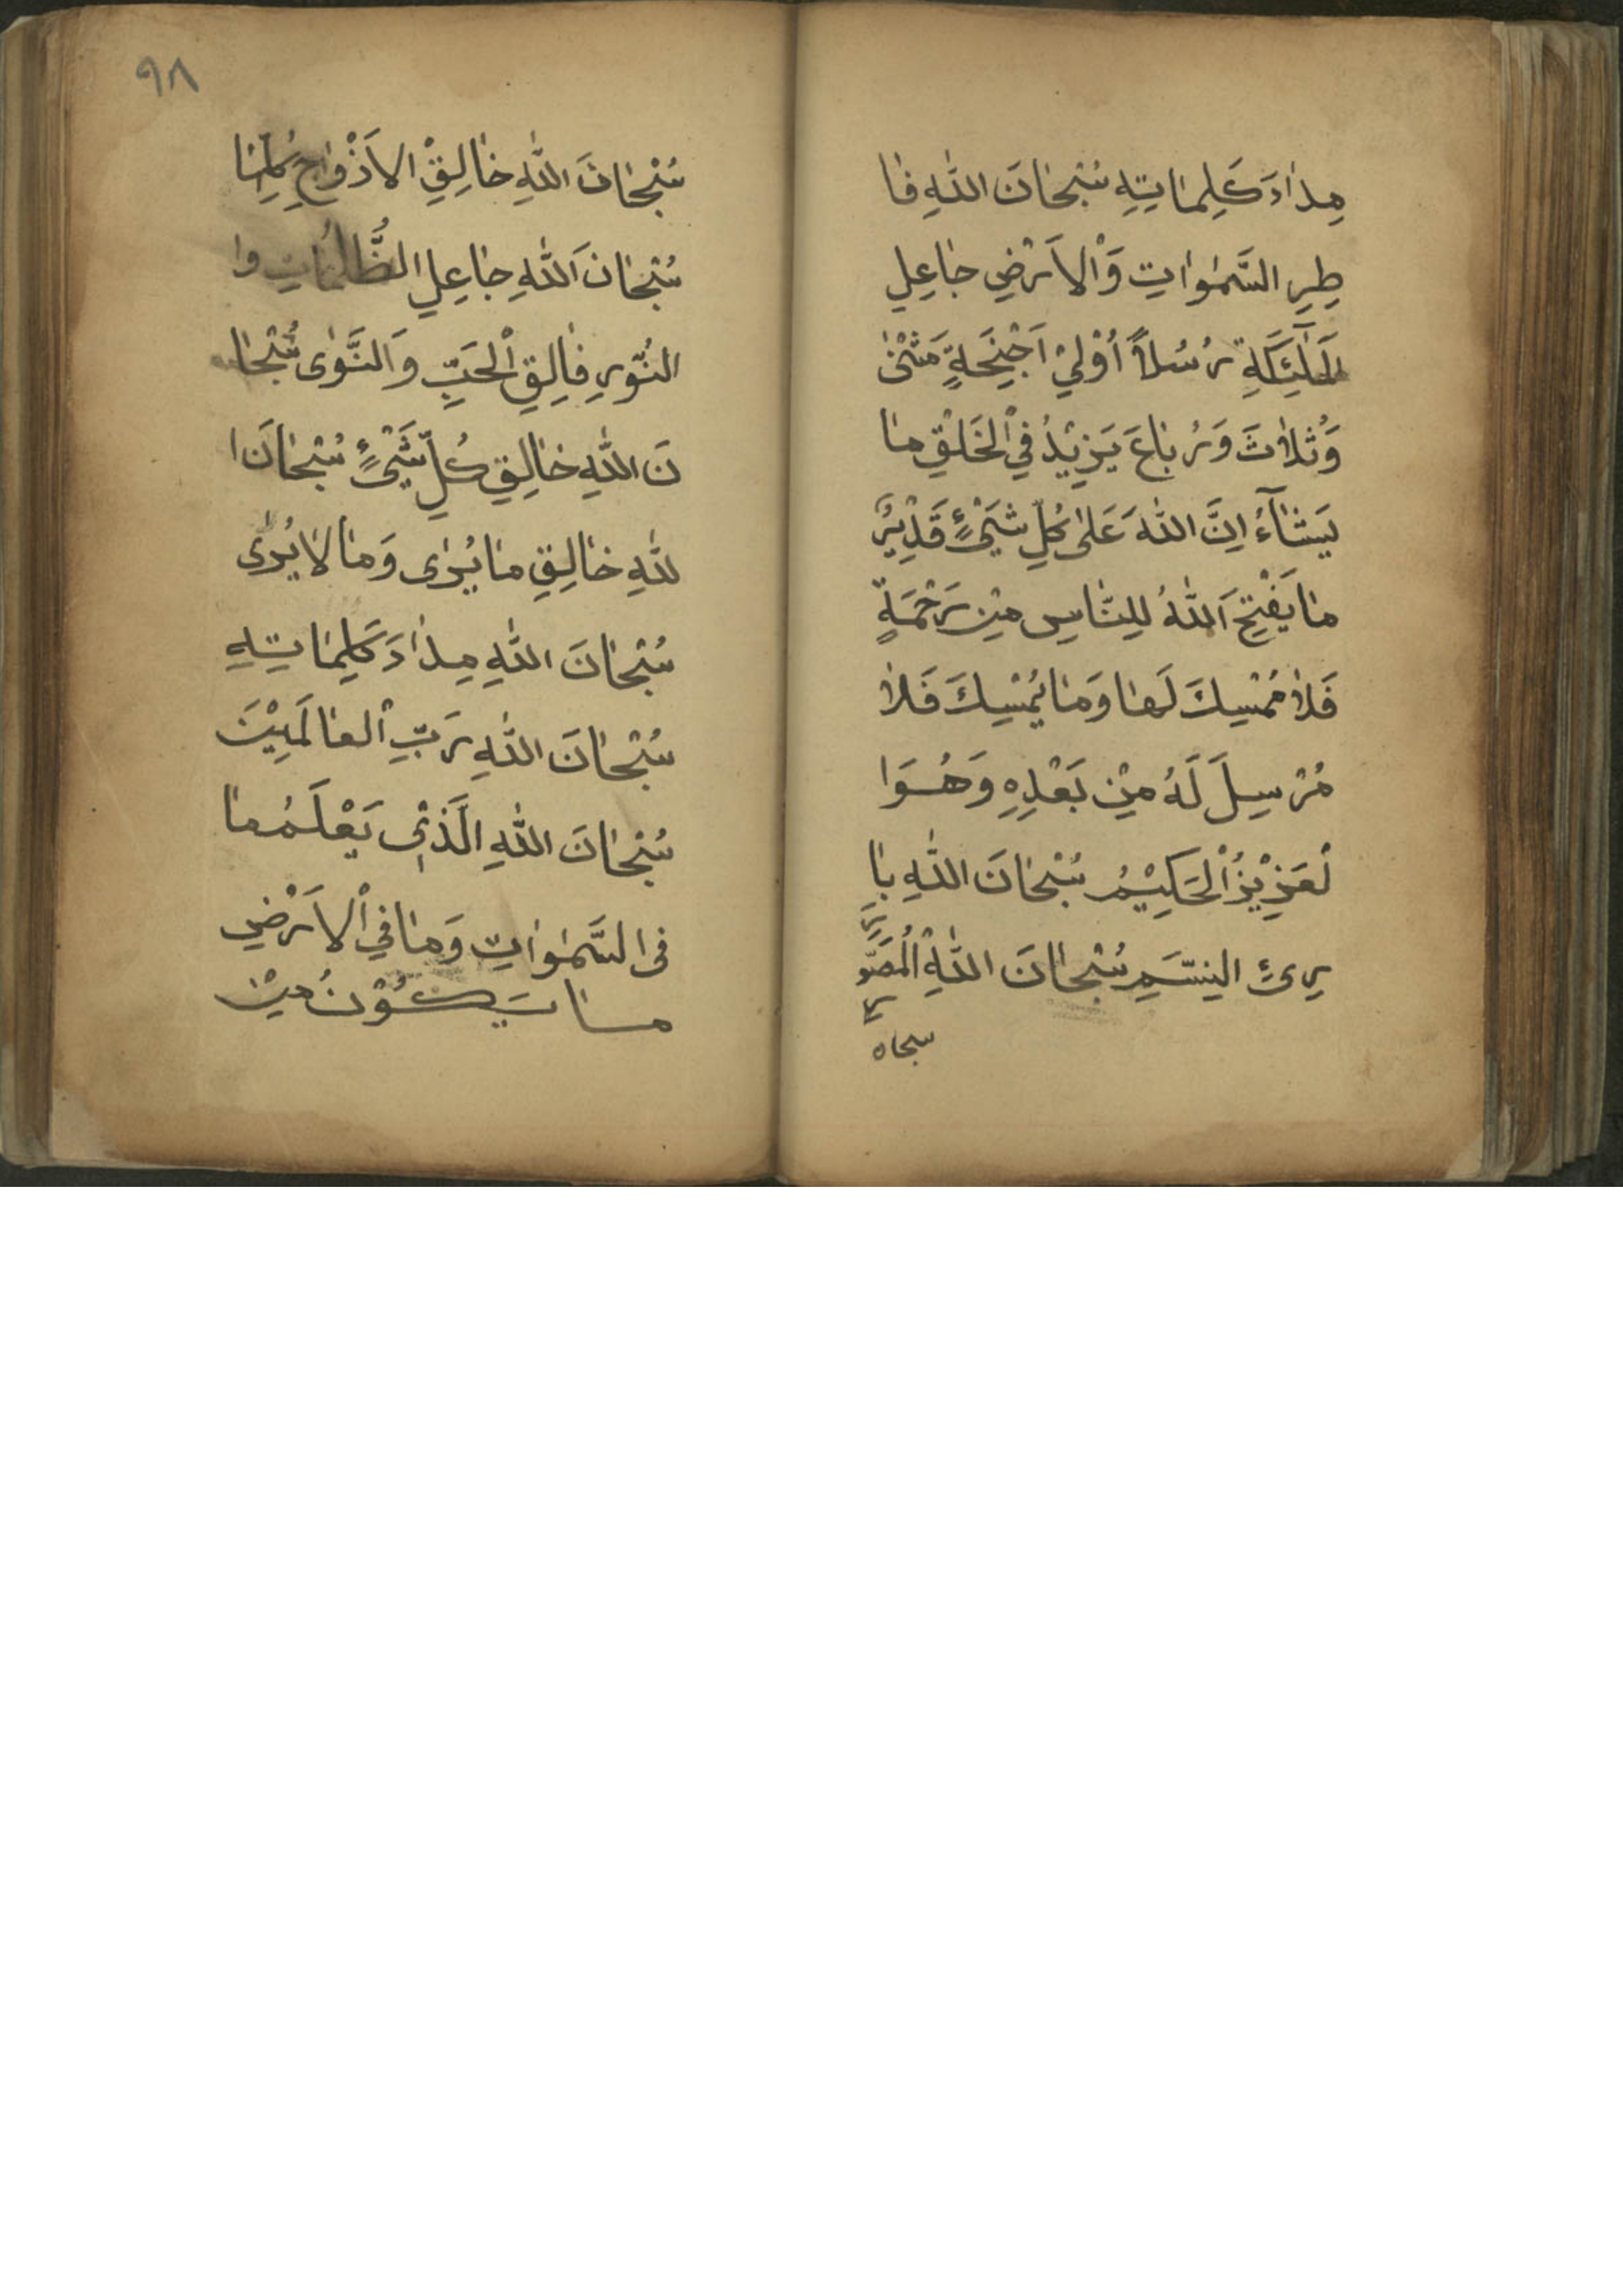 مِدٰادَ كَلِمٰاتِهِ سُبْحٰانَ اللّٰهِ فٰا
طِرِ السَّمٰوٰاتِ وَالْاَرْضِ جٰاعِلِ
الْمَلٰٓئِكَةِ رُسُلاً اُوْلِيْ اَجْنِحَةٍ مَثْنٰى
وَثُلاٰثَ وَرُبٰاعَ يَزِيْدُ فِي الْخَلْقِ مٰا
يَشٰآءُ اِنَّ اللّٰهَ عَلٰى كُلِّ شَيْئٍ قَدِيْرٌ
مٰا يَفْتَحِ اللّٰهُ لِلنّٰاسِ مِنْ رَحْمَةٍ
فَلاٰ مُمْسِكَ لَهٰا وَمٰا يُمْسِكَ فَلاٰ
مُرْسِلَ لَهُ مِنْ بَعْدِهِ وَهُوَا
لْعَزِيْزُ الْحَكِيْمُ سُبْحٰانَ اللّٰهِ بٰا
رِئِ النَّسَمِ سُبْحٰانَ اللّٰهِ الْمُصَوِّرِ
سبحان
٩٨
سُبْحٰانَ اللّٰهِ خٰالِقِ الْاَزْوٰاجِ كُلِّهٰا
سُبْحٰانَ اللّٰهِ جٰاعِلِ الظُّلُمٰاتِ وا
النُّوْرِ فٰالِقِ الْحَبِّ وَالنَّوٰى سُبْحٰا
نَ اللّٰهِ خٰالِقِ كُلِّ شَيْئٍ سُبْحٰانَ ا
للّٰهِ خٰالِقِ مٰا يُرٰى وَمٰا لاٰ يُرٰى
سُبْحٰانَ اللّٰهِ مِدٰادَ كَلِمٰاتِهِ
سُبْحٰانَ اللّٰهِ رَبِّ الْعٰالَمِيْنَ
سُبْحٰانَ اللّٰهِ الَّذِيْ يَعْلَمُ مٰا
فِى السَّمٰوٰاتِ وَمٰا فِي الْاَرْضِ
مٰا يَكُوْنُ مِنْ